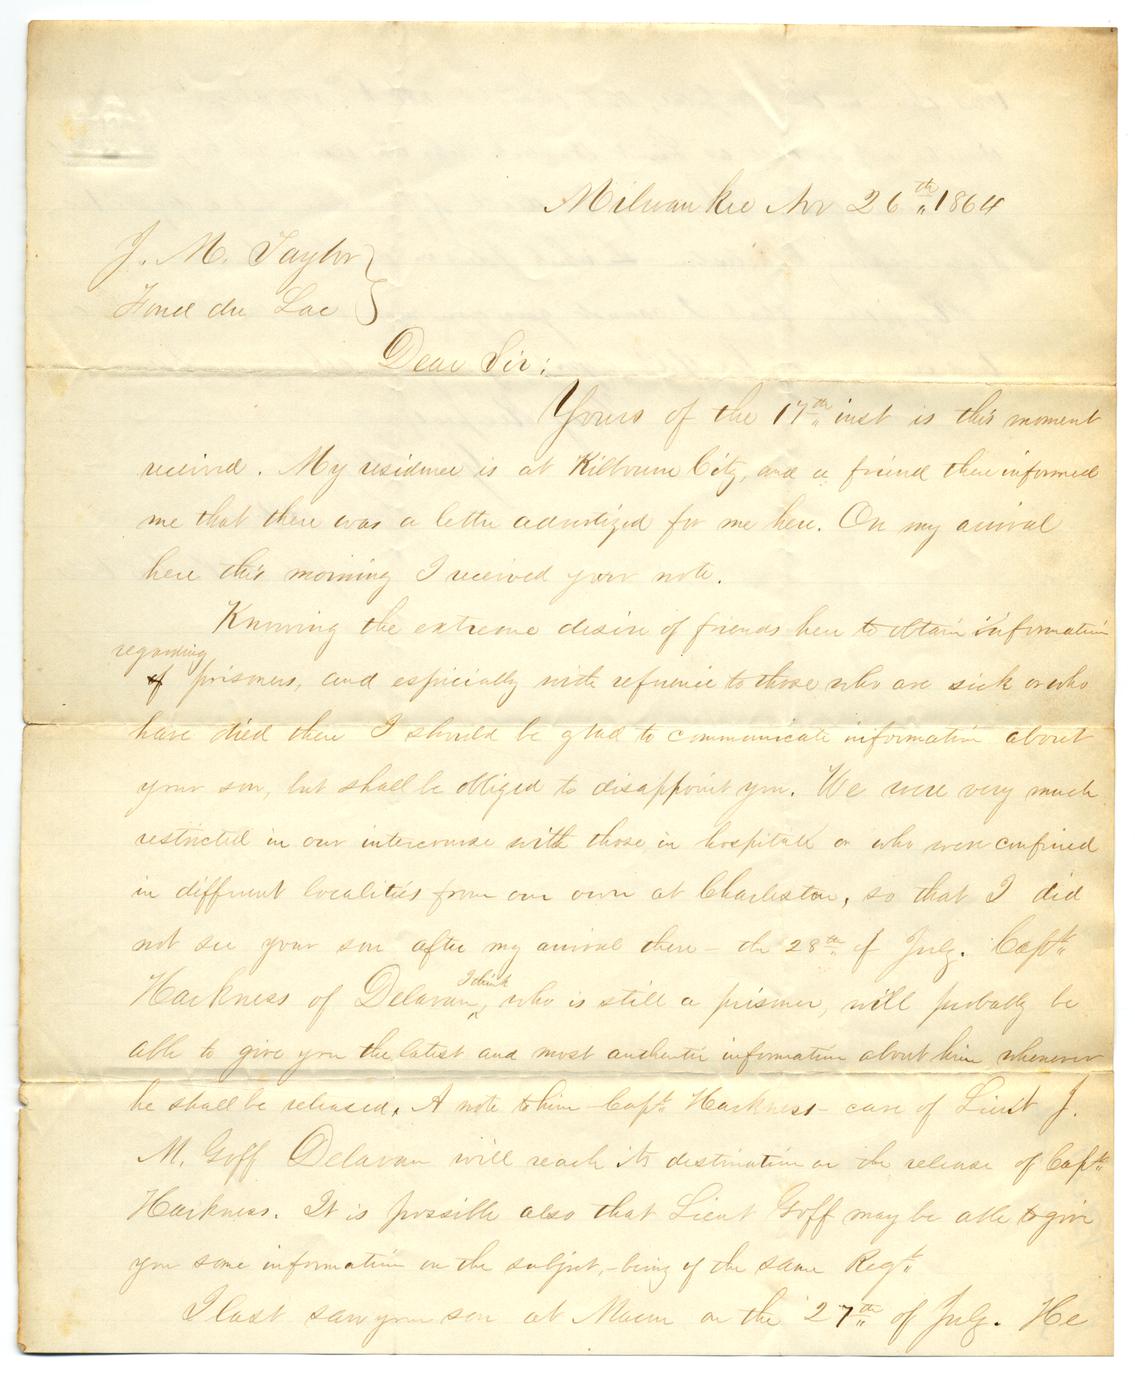 Milwaukee Nov 26th 1864
J. M. Taylor
Fond du Lac
Dear Sir:
Yours of the 17th inst is this moment
received. My residence is at Kilbourn City, and a friend there informed
me that there was a letter advertized for me here. On my arrival
here this morning I received your note.
Knowing the extreme desire of friends here to obtain information
regarding
of prisoners, and especially with reference to those who are sick or who
have died there I should be glad to communicate information about
your son, but shall be obliged to disappoint you. We were very much
restricted in our intercourse with those in hospitals or who were confined
in different localities from our own at Charleston, so that I did
not see your son after my arrival there - the 28th of July. Capt
I think
Harkness of Delavan, who is still a prisoner, will probably be
able to give you the latest and most authentic information about him whenever
he shall be released. A note to him - Capt Harkness - care of Lieut J.
M. Goff Delavan will reach its destination on the release of Capt
Harkness. It is possible also that Lieut Goff may be able to give
you some information on the subject, - being of the same Regt
I last saw your son at Macon on the 27th of July. He